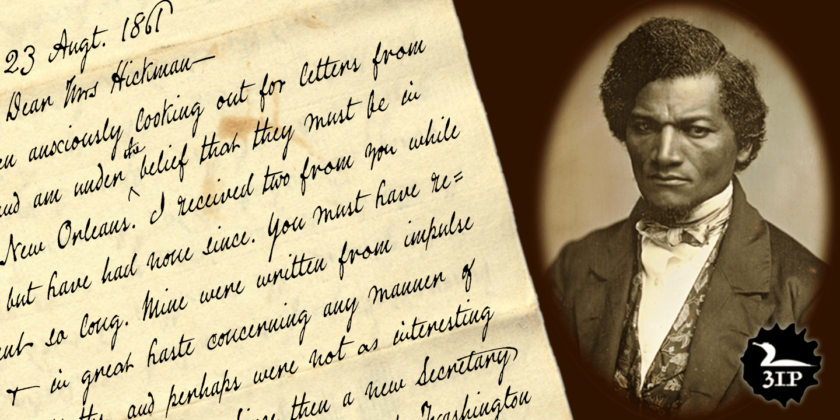 23 Augt. 1861
Dear Mrs Hickman—
anxiously looking out for letters from
and am under the belief that they must be in
New Orleans. I received two from you while
but have had none since. You must have re=
so long. Mine were written from impulse
& in great haste concerning any manner of
and perhaps were not as interesting
then a new Secretary
Washington
3IP